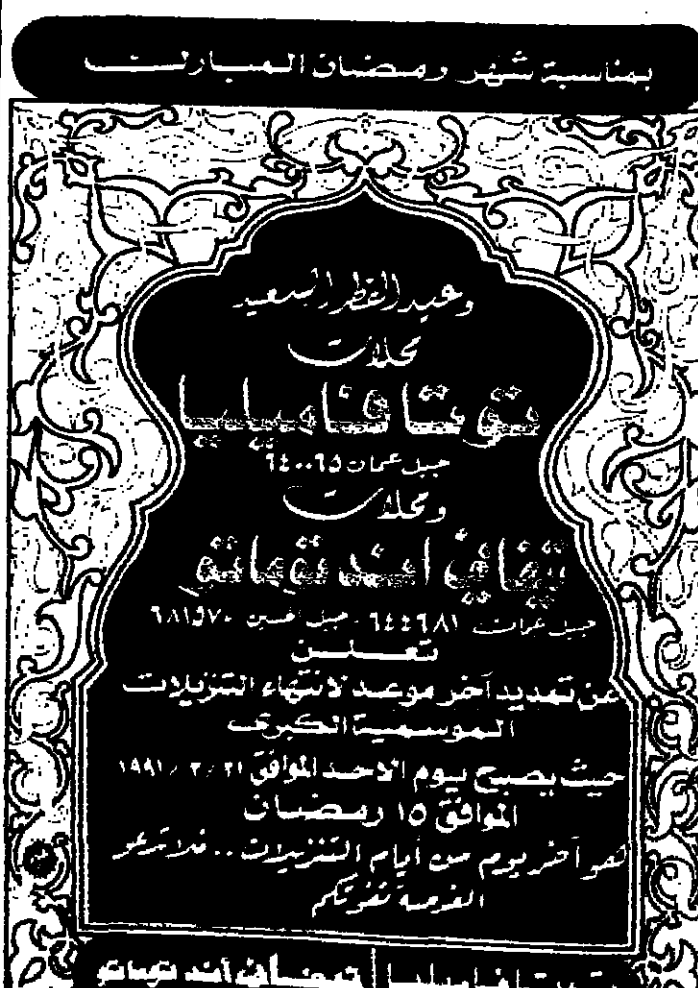 بمناسبة شهر رمضان المبارك
وعيد الفطر السعيد
محلات
توتتا فاميليا
جبل عمان ٦٤٠٠٦٥
ومحلات
تيفاني اند توماتو
جبل عمان ٦٤٤٦٨١ - جبل الحسين
تعلن
عن تمديد آخر موعد لانتهاء التنزيلات
الموسمية الكبرى
حيث يصبح يوم الاحد الموافق ٣١ / ٣ / ١٩٩١
الموافق ١٥ رمضان
هو آخر يوم من أيام التنزيلات .. فلا تدعو
الفرصة تفوتكم
فاميليا | تيفاني أند توماتو